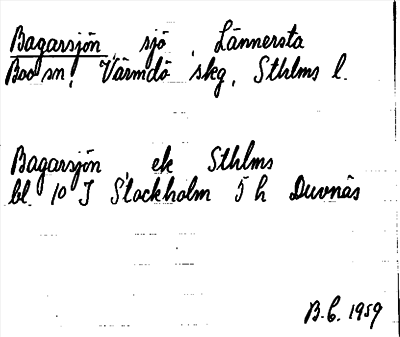 Bagarsjön, sjö, Lännersta
Boo sn, Värmdö skg, Sthlms l.
Bagarsjön, ek Sthlms
bl. 10 I Stockholm 5 h Duvnäs
B.C. 1959